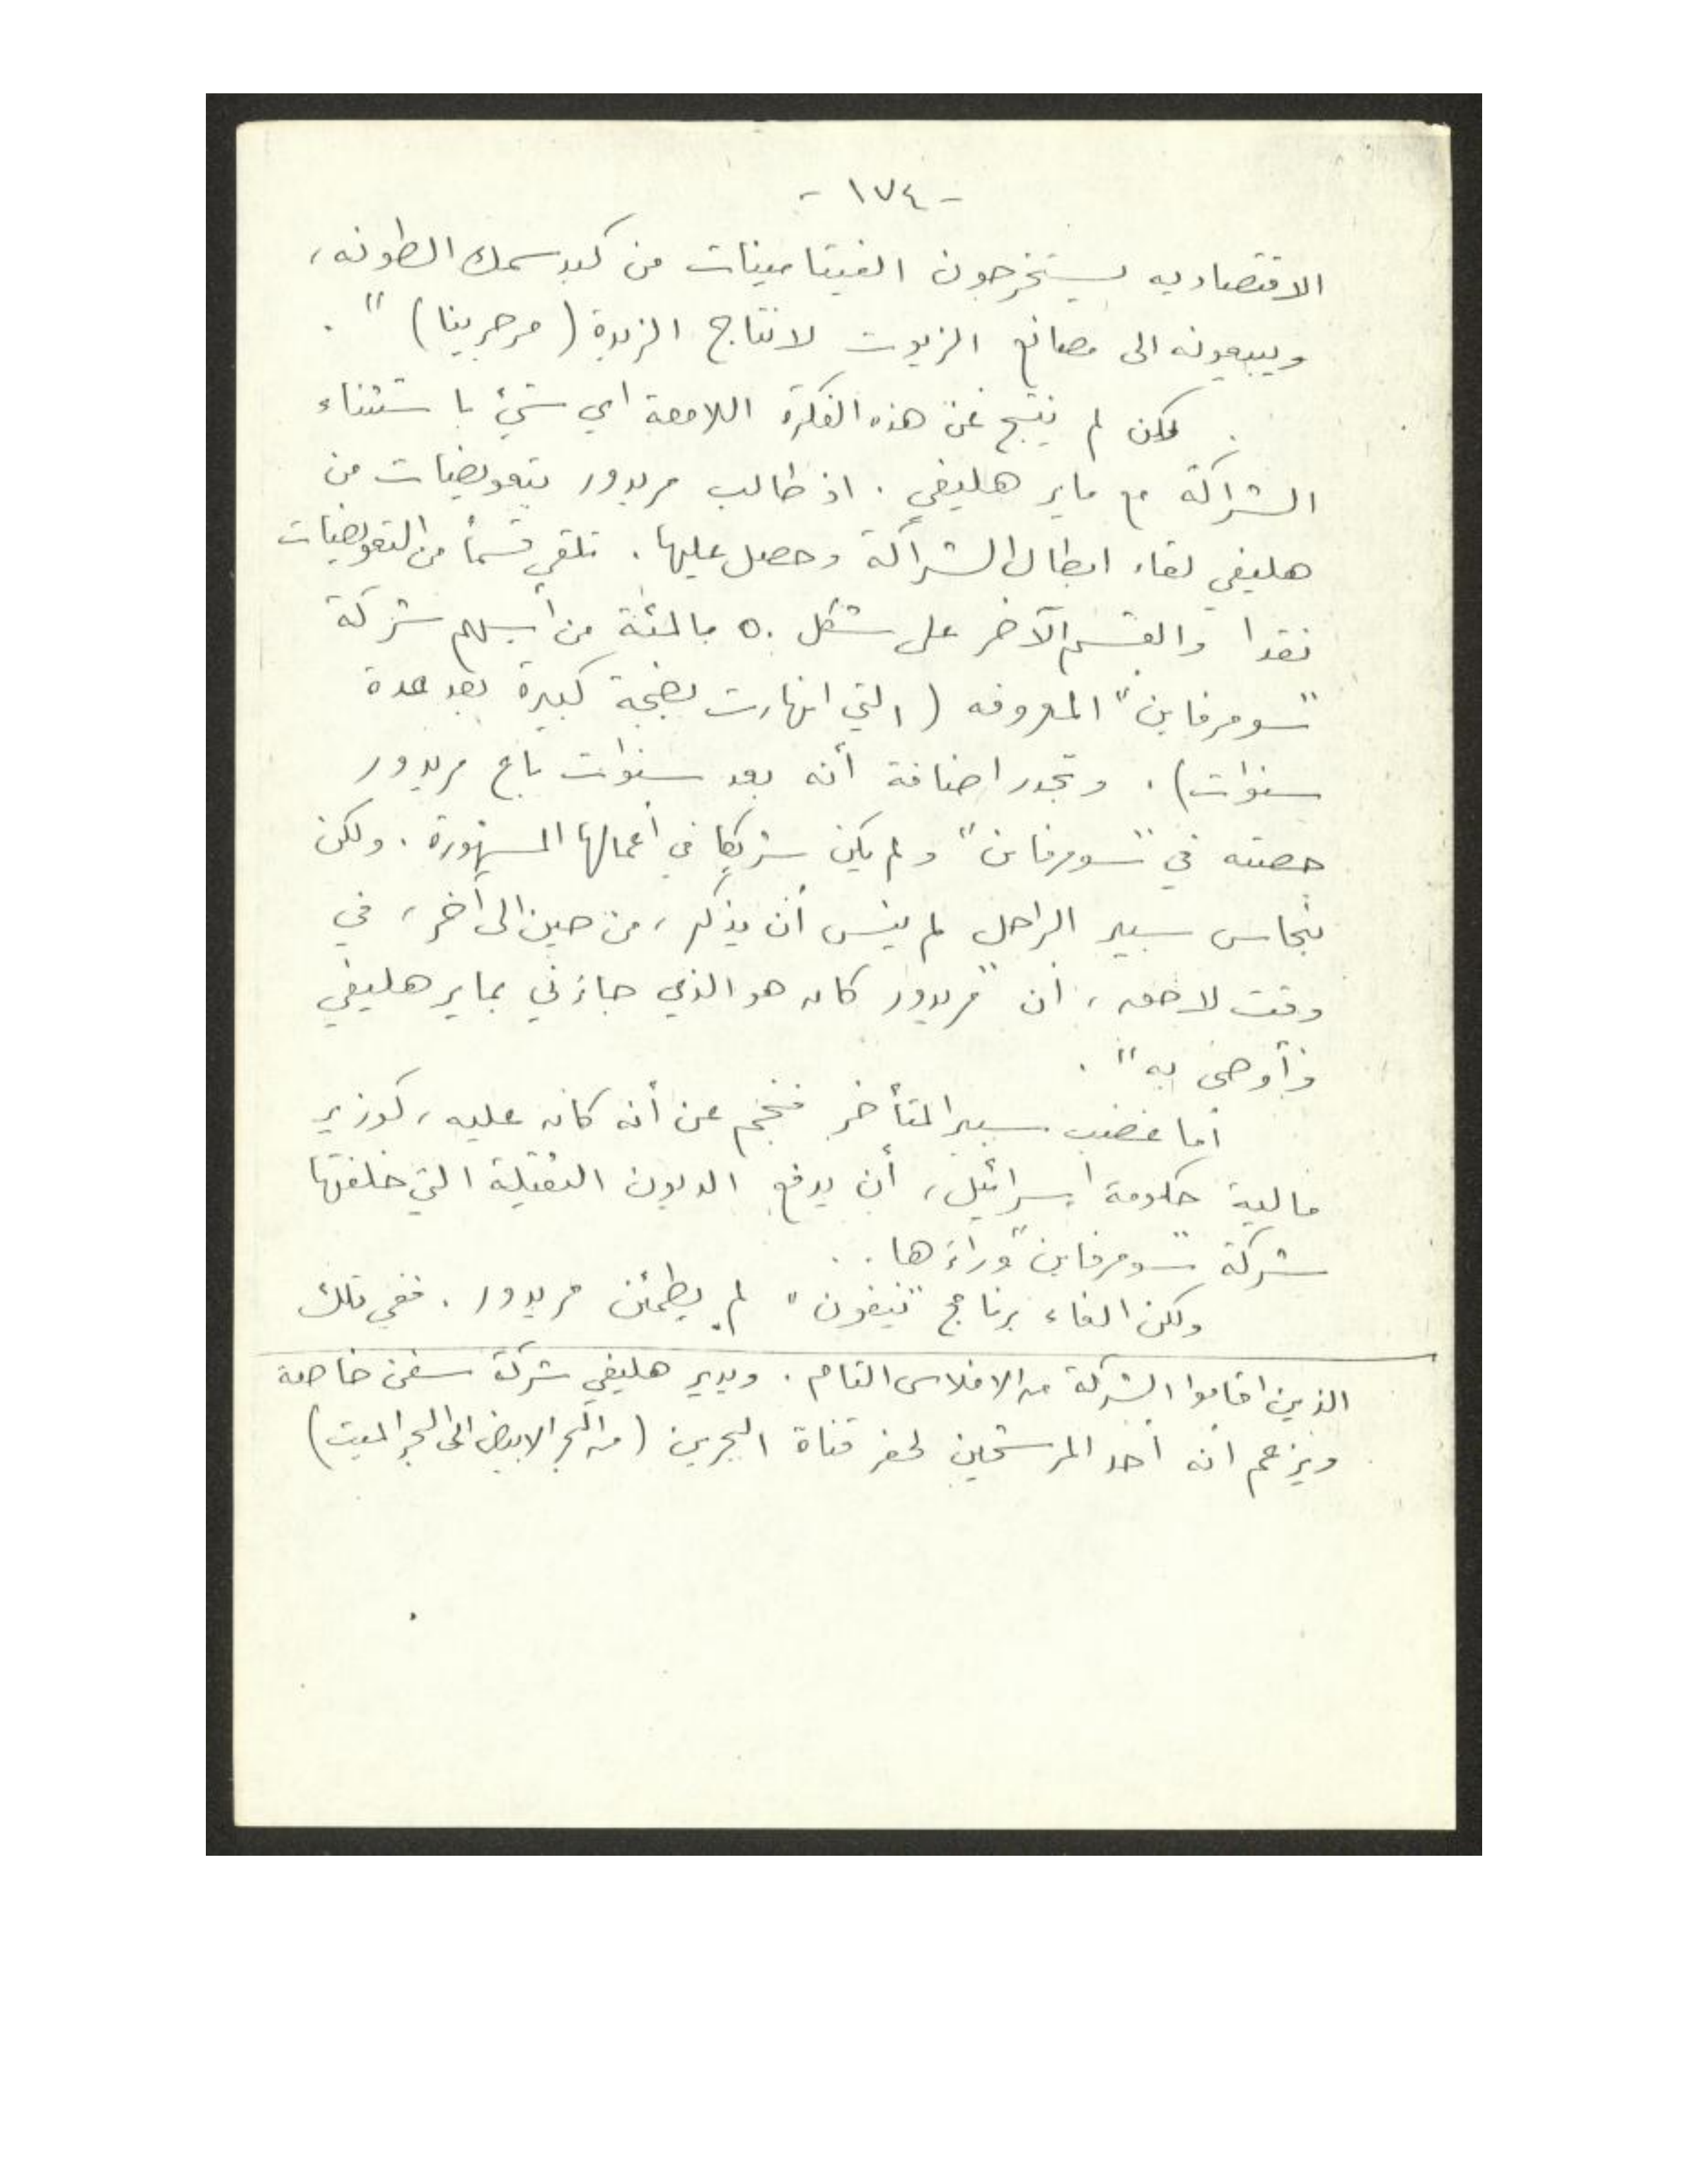 - ١٧٤ -
الاقتصاديه يستخرجون الفيتامينات من كبد سمك الطونه،
ويبيعونه الى مصانع الزيوت لانتاج الزبدة (مرجرينا) " .
لكن لم ينتج عن هذه الفكرة اللامعة اي شيء باستثناء
الشراكة مع ماير هليفي . اذ طالب مريدور بتعويضات من
هليفي لقاء ابطال الشراكة وحصل عليها . تلقى قسماً من التعويضات
نقدا والقسم الآخر على شكل ٥٠ بالمئة من أسهم شركة
"سومرفاين" المعروفه (التي انهارت بضجة كبيرة بعد عدة
سنوات) . وتجدر اضافة أنه بعد سنوات باع مريدور
حصته في "سومرفاين" ولم يكن شريكا في أعمالها المتهورة . ولكن
بنحاس سبير الراحل لم ينس أن يذكر ، من حين الى آخر ، في
وقت لاحق ، ان "مريدور كان هو الذي جاءني بماير هليفي
وأوصى به " .
أما غضب سبير المتأخر فنجم عن أنه كان عليه ، كوزير
مالية حكومة اسرائيل ، أن يدفع الديون الثقيلة التي خلفتها
شركة "سومرفاين" وراءها . .
ولكن الغاء برنامج "تيفون" لم يطمئن مريدور . ففي تلك
الذين اقاموا الشركة من الافلاس التام . ويدير هليفي شركة سفن خاصة
ويزعم انه أحد المرشحين لحفر قناة البحرين (من البحر الابيض الى البحر الميت)